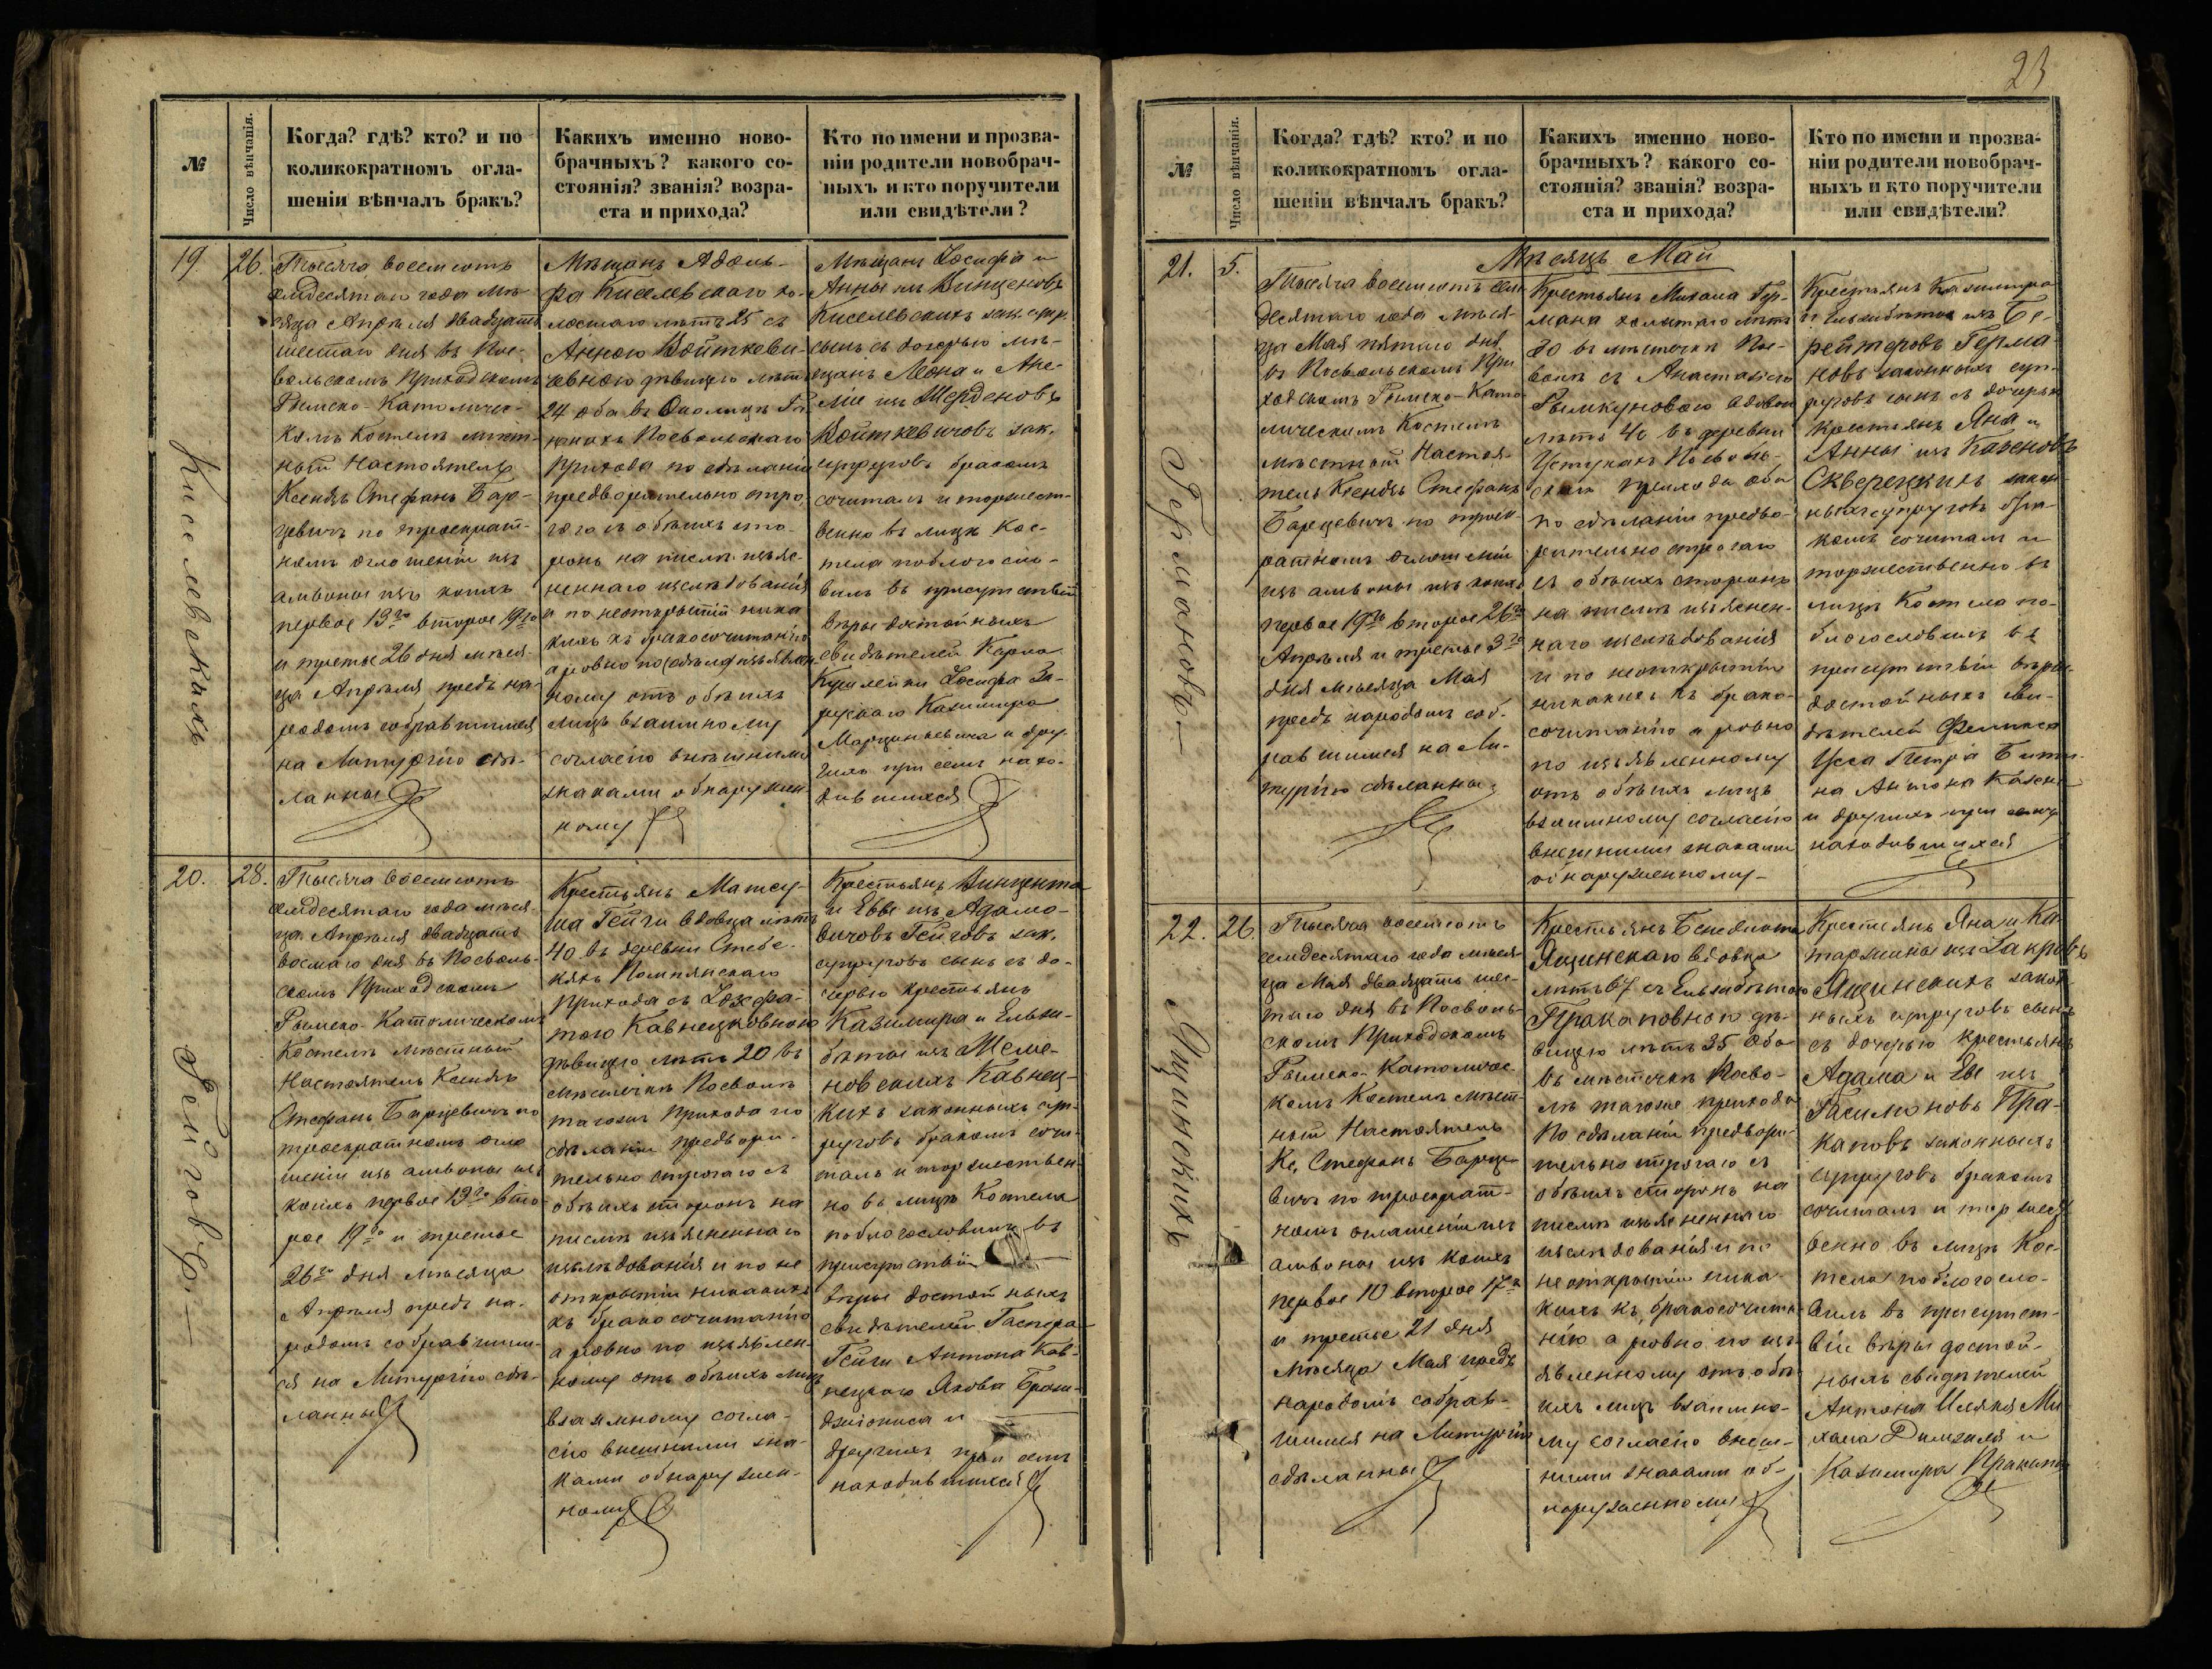 23
№
Число вѣнчанія.
Когда? гдѣ? кто? и по
коликократномъ огла-
шеніи вѣнчалъ бракъ?
Какихъ именно ново-
брачныхъ? какого со-
стоянія? званія? возра-
ста и прихода?
Кто по имени и прозва-
ніи родители новобрач-
ныхъ и кто поручители
или свидѣтели?
19.
26.
Киселевскихъ
Тысяча восемсотъ
семдесятаго года мѣ-
сяца Апрѣля двадцать
шестаго дня въ Пос-
вольскомъ Приходскомъ
Римско-Католичес-
комъ Костелѣ мѣст-
ный Настоятель
Ксендзъ Стефанъ Бар-
цевичъ по троекрат-
номъ оглошеніи изъ
амвоны изъ коихъ
первое 13го второе 19го
и третье 26 дня мѣся-
ца Апрѣля предъ на-
родомъ собравшимся
на Литургію сдѣ-
ланный
Мѣщанъ Адоль-
фа Киселевскаго хо-
лостаго лѣтъ 25 съ
Анною Войткеви-
чевною дѣвицею лѣтъ
24 оба въ Околицѣ
Посвольскаго
Прихода по сдѣланіи
предворительно стро-
гаго съ обѣихъ сто-
ронъ на писмѣ изъяс-
неннаго изслѣдованія
и по неоткрытіи ника-
кихъ къ бракосочитанію
а ровно по изъявлен-
ному отъ обѣихъ
лицъ взаимному
согласію внѣшними
знаками обнаружен-
ному
Мѣщанъ Іосифа и
Анны изъ Винценовъ
Киселевскихъ зак. супр.
сынъ съ дочерью мѣ-
щанъ Леона и Ане-
ліи изъ Шерденовъ
Войткевичовъ зак.
супруговъ бракомъ
сочиталъ и торжест-
венно въ лицѣ Кос-
тела поблогосло-
вилъ въ присутствіи
вѣры достойныхъ
свидѣтелей Карла
Іосифа За-
рускаго Казимира
Марцинкевича и дру-
гихъ при семъ нахо-
дившихся
20.
28.
Гейговъ.—
Тысяча восемсотъ
семдесятаго года мѣся-
ца Апрѣля двадцать
восмаго дня въ Посволь-
скомъ Приходскомъ
Римско-Католическомъ
Костелѣ мѣстный
Настоятель Ксендзъ
Стефанъ Барцевичъ по
троекратномъ огло-
шеніи изъ амвоны изъ
коихъ первое 13го вто-
рое 19го и третье
26го дня мѣсяца
Апрѣля предъ на-
родомъ собравшим-
ся на Литургію сдѣ-
ланный
Крестьянъ Матеу-
ша Гейги вдовца лѣтъ
40 въ деревни Стебе-
кяхъ Помпянскаго
Прихода съ Іозефа-
тою Кавнецковною
дѣвицею лѣтъ 20 въ
мѣстечкѣ Посволѣ
тагожъ Прихода по
сдѣланіи предвори-
тельно строгаго съ
обѣихъ сторонъ на
писмѣ изъясненнаго
изслѣдованія и по не
открытіи никакихъ
къ бракосочитанію
а ровно по изъявлен-
ному отъ обѣихъ лицъ
взаимному согла-
сію внешними зна-
ками обнаружен-
ному
Крестьянъ Винцента
и Еввы изъ Адамо-
вичовъ Гейговъ зак.
супруговъ сынъ съ до-
черью крестьянъ
Казимира и Ельзи-
бѣты изъ Шема-
новскихъ Кавнец-
кихъ законныхъ суп-
руговъ бракомъ сочи-
талъ и торжествен-
но въ лицѣ Костела
поблогословилъ въ
присутствіи
вѣры достойныхъ
свидѣтелей Гаспера
Гейги Антона Кав-
нецкаго Якова
и
другихъ при семъ
находившихся
№
Число вѣнчанія.
Когда? гдѣ? кто? и по
коликократномъ огла-
шеніи вѣнчалъ бракъ?
Какихъ именно ново-
брачныхъ? какого со-
стоянія? званія? возра-
ста и прихода?
Кто по имени и прозва-
ніи родители новобрач-
ныхъ и кто поручители
или свидѣтели?
Мѣсяцъ Май
21.
5.
Германовъ.—
Тысяча восемсотъ сем-
десятаго года мѣся-
ца Мая пятаго дня
въ Посвольскомъ При-
ходскомъ Римско-Като-
лическомъ Костелѣ
мѣстный Настоя-
тель Ксендзъ Стефанъ
Барцевичъ по троек-
ратномъ оглошеніи
изъ амвоны изъ коихъ
первое 19го второе 26го
Апрѣля и третье 3го
дня мѣсяца Мая
предъ народомъ соб-
равшимся на Ли-
тургію сдѣланный
Крестьянъ Михала Гер-
мана холостаго лѣтъ
30 въ мѣстечкѣ Пос-
волѣ съ Анастазіею
Рымкуновою вдовою
лѣтъ 40 въ деревни
Устуканъ Посволь-
скаго прихода оба
по сдѣланіи предво-
рительно строгаго
съ обѣихъ сторонъ
на писмѣ изъяснен-
наго изслѣдованія
и по неоткрытіи
никакихъ къ брако-
сочитанію а ровно
по изъявленному
отъ обѣихъ лицъ
взаимному согласію
внешними знаками
обнаруженному—
Крестьянъ Казимира
и Ельзибѣты изъ Бе-
рейтеровъ Герма-
новъ законныхъ суп-
руговъ сынъ съ дочерью
крестьянъ Яна и
Анны изъ Каженовъ
Скверецкихъ закон-
ныхъ супруговъ бра-
комъ сочиталъ и
торжественно въ
лицѣ Костела по-
блогословилъ въ
присутствіи вѣры
достойныхъ сви-
дѣтелей Феликса
Усса Петра
на Антона
и другихъ при семъ
находившихся
22.
26.
Ящинскихъ
Тысяча восемсотъ
семдесятаго года мѣся-
ца Мая двадцать шес-
таго дня въ Посволь-
скомъ Приходскомъ
Римско-Католичес-
комъ Костелѣ мѣст-
ный Настоятель
Кс. Стефанъ Барце-
вичъ по троекрат-
номъ оглашеніи изъ
амвоны изъ коихъ
первое 10 второе 17го
и третье 21 дня
мѣсяца Мая предъ
народомъ собрав-
шимся на Литургію
сдѣланный
Крестьянъ Бенедикта
Ящинскаго вдовца
лѣтъ 67 съ Ельзибѣтою
Пракаповною дѣ-
вицею лѣтъ 35 Оба
въ мѣстечкѣ Посво-
лѣ тагоже прихода
По сдѣланіи предвори-
тельно строгаго съ
обѣихъ сторонъ на
писмѣ изъясненнаго
изслѣдованія и по
неоткрытіи ника-
кихъ къ бракосочита-
нію а ровно по изъ-
явленному отъ обѣ-
ихъ лицъ взаимно-
му согласію внеш-
ними знаками об-
наруженному
Крестьянъ Яна и Ка-
таржины изъ Закрисъ
Ящинскихъ закон-
ныхъ супруговъ сынъ
съ дочерью крестьянъ
Адама и Евы изъ
Гасилюновъ Пра-
каповъ законныхъ
супруговъ бракомъ
сочиталъ и торжест-
венно въ лицѣ Кос-
тела поблогосло-
вилъ въ присутст-
віи вѣры достой-
ныхъ свидѣтелей
Антона Ми-
хала и
Казимира